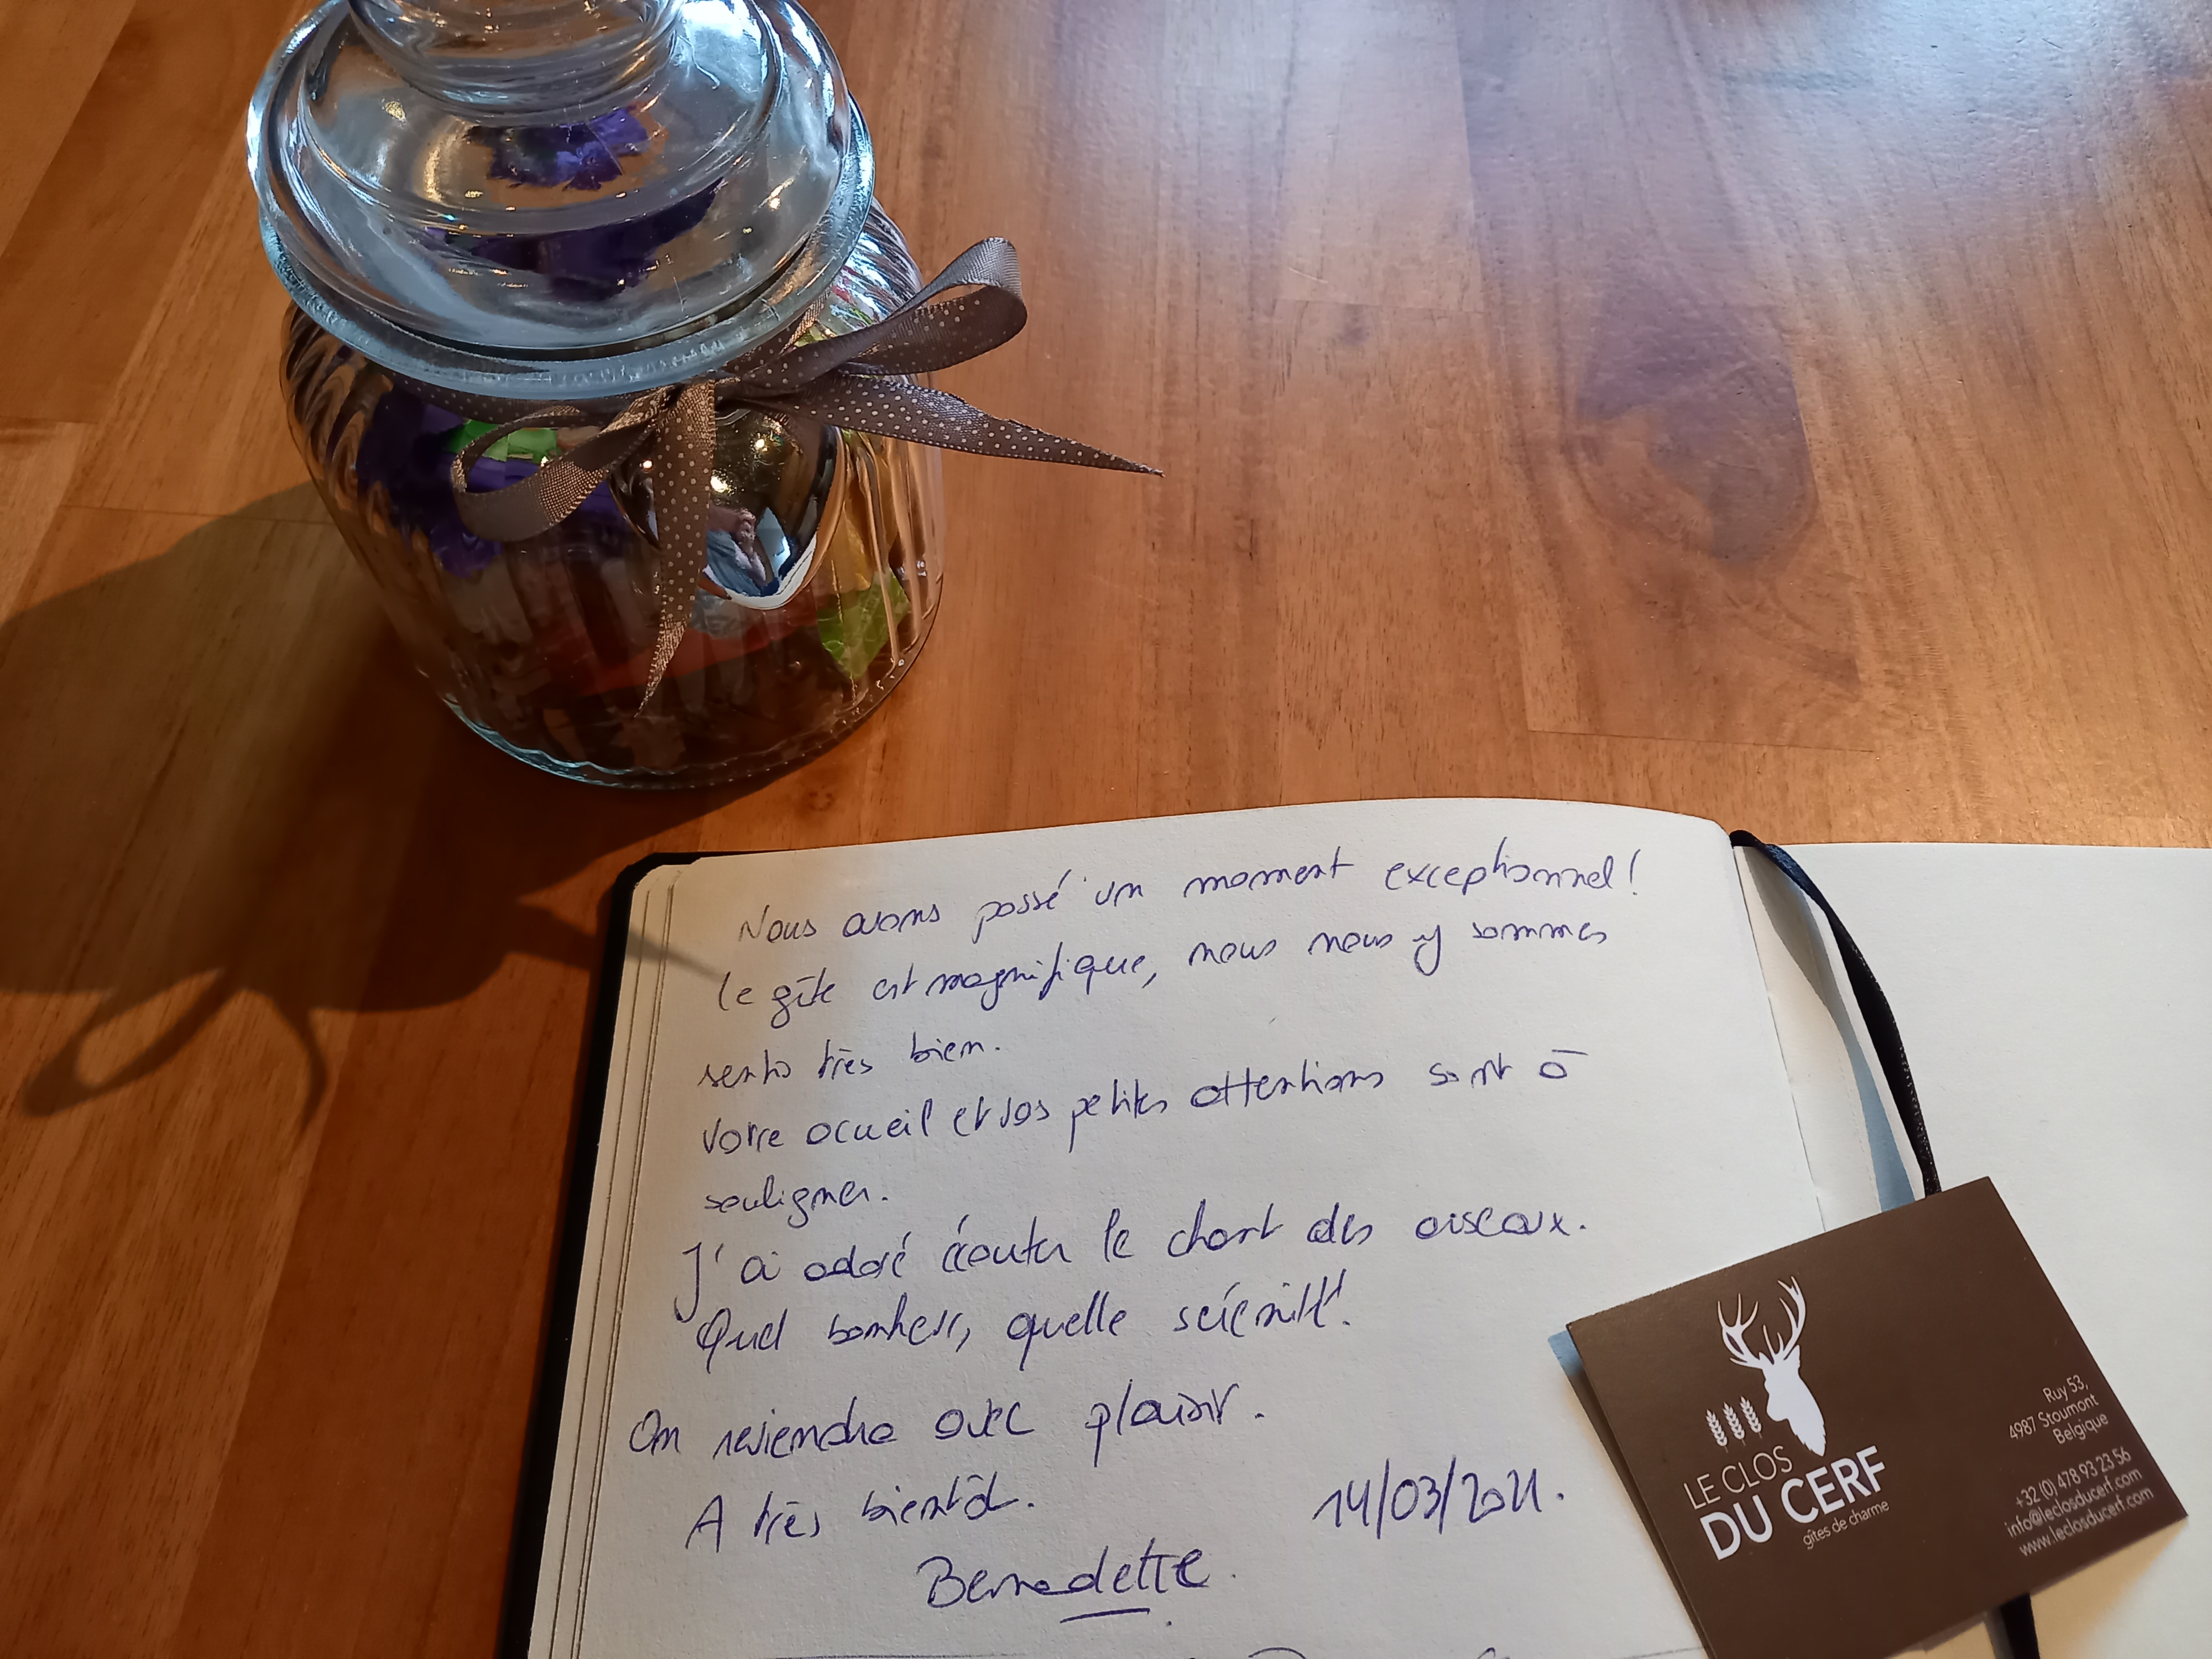 Nous avons passé un moment exceptionnel!
Le gîte est magnifique, nous nous y sommes
sentis très bien.
Votre acueil et vos petites attentions sont à
souligner.
J'ai adoré écouter le chant des oiseaux.
Quel bonheur, quelle sérénité!
On reviendra avec plaisir.
A très bientôt.
14/03/2021.
Bernadette
LE CLOS
DU CERF
gîtes de charme
Ruy 53,
4987 Stoumont
Belgique
+32 (0) 478 93 23 56
info@leclosducerf.com
www.leclosducerf.com